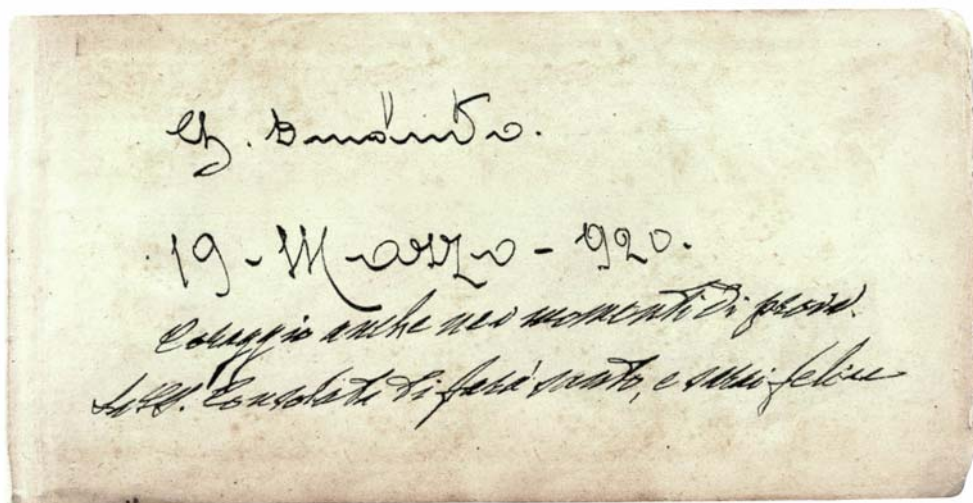 19 - Marzo - 920.
Coraggio anche nei momenti di prova.
La SS. Consolata ti farà santo, e sarai felice